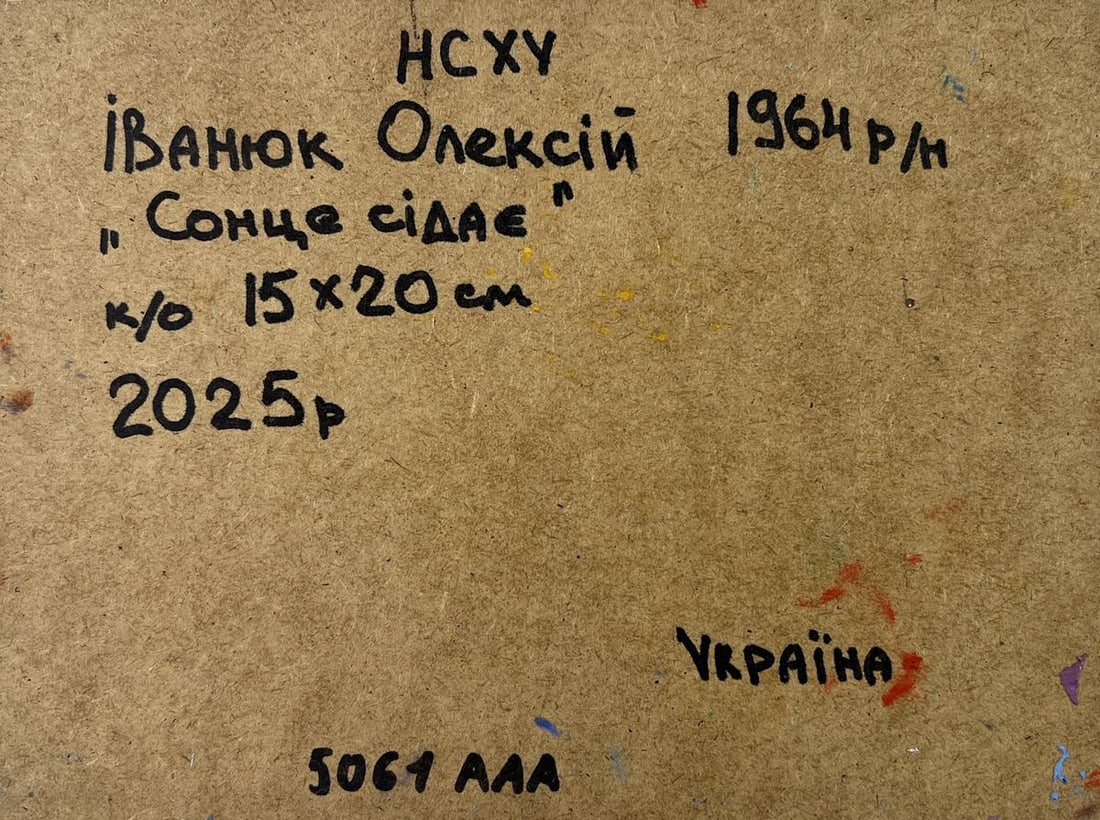 НСХУ
Іванюк Олексій 1964 р/н
„Сонце сідає"
к/о 15х20 см
2025р
Україна
5061 ААА